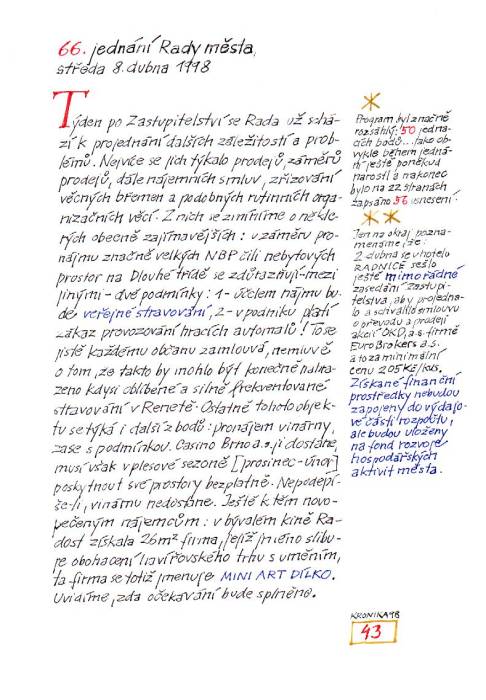 66. jednání Rady města,
středa 8. dubna 1998
Týden po Zastupitelství se Rada už schá-
zí k projednání dalších záležitostí a prob-
lémů. Nejvíce se jich týkalo prodejů, záměrů
prodejů, dále nájemních smluv, zřizování
věcných břemen a podobných rutinních orga-
nizačních věcí. Z nich se zmíníme o někte-
rých obecně zajímavějších: v záměru pro-
nájmu značně velkých NBP čili nebytových
prostor na Dlouhé třídě se zdůrazňují-mezi
jinými - dvě podmínky: 1- účelem nájmu bu-
de veřejné stravování, 2- v podniku platí
zákaz provozování hracích automatů! To se
jistě každému občanu zamlouvá, nemluvě
o tom, že takto by mohlo být konečně nahra-
zeno kdysi oblíbené a silně frekventované
stravování v Renetě. Ostatně tohoto objek-
tu se týká i další z bodů: pronájem vinárny,
zase s podmínkou. Casino Brno a.s. ji dostane,
musí však v plesové sezoně [prosinec-únor]
poskytnout své prostory bezplatně. Nepodepí-
še-li, vinárnu nedostane. Ještě k těm novo-
pečeným nájemcům: v bývalém kině Ra-
dost získala 26m² firma, jejíž jméno slibu-
je obohacení havířovského trhu s uměním,
ta firma se totiž jmenuje MINI ART DÍLKO.
Uvidíme, zda očekávání bude splněno.
*
Program byl značně
rozsáhlý: 50 jedna-
cích bodů... Jako ob-
vykle během jedná-
ní ještě poněkud
narostl a nakonec
bylo na 22 stranách
zapsáno 56 usnesení.
* *
Jen na okraj pozna-
menáme, že:
2. dubna se v hotelu
RADNICE sešlo
ještě mimořádné
zasedání zastupi-
telstva, aby projedna-
lo a schválilo smlouvu
o převodu a prodeji
akcií OKD, a.s. firmě
EuroBrokers a.s.
a to za minimální
cenu 205 Kč/kus.
Získané finanční
prostředky nebudou
zapojeny do výdajo-
vé části rozpočtu,
ale budou uloženy
na fond rozvoje
hospodářských
aktivit města.
KRONIKA 98
43